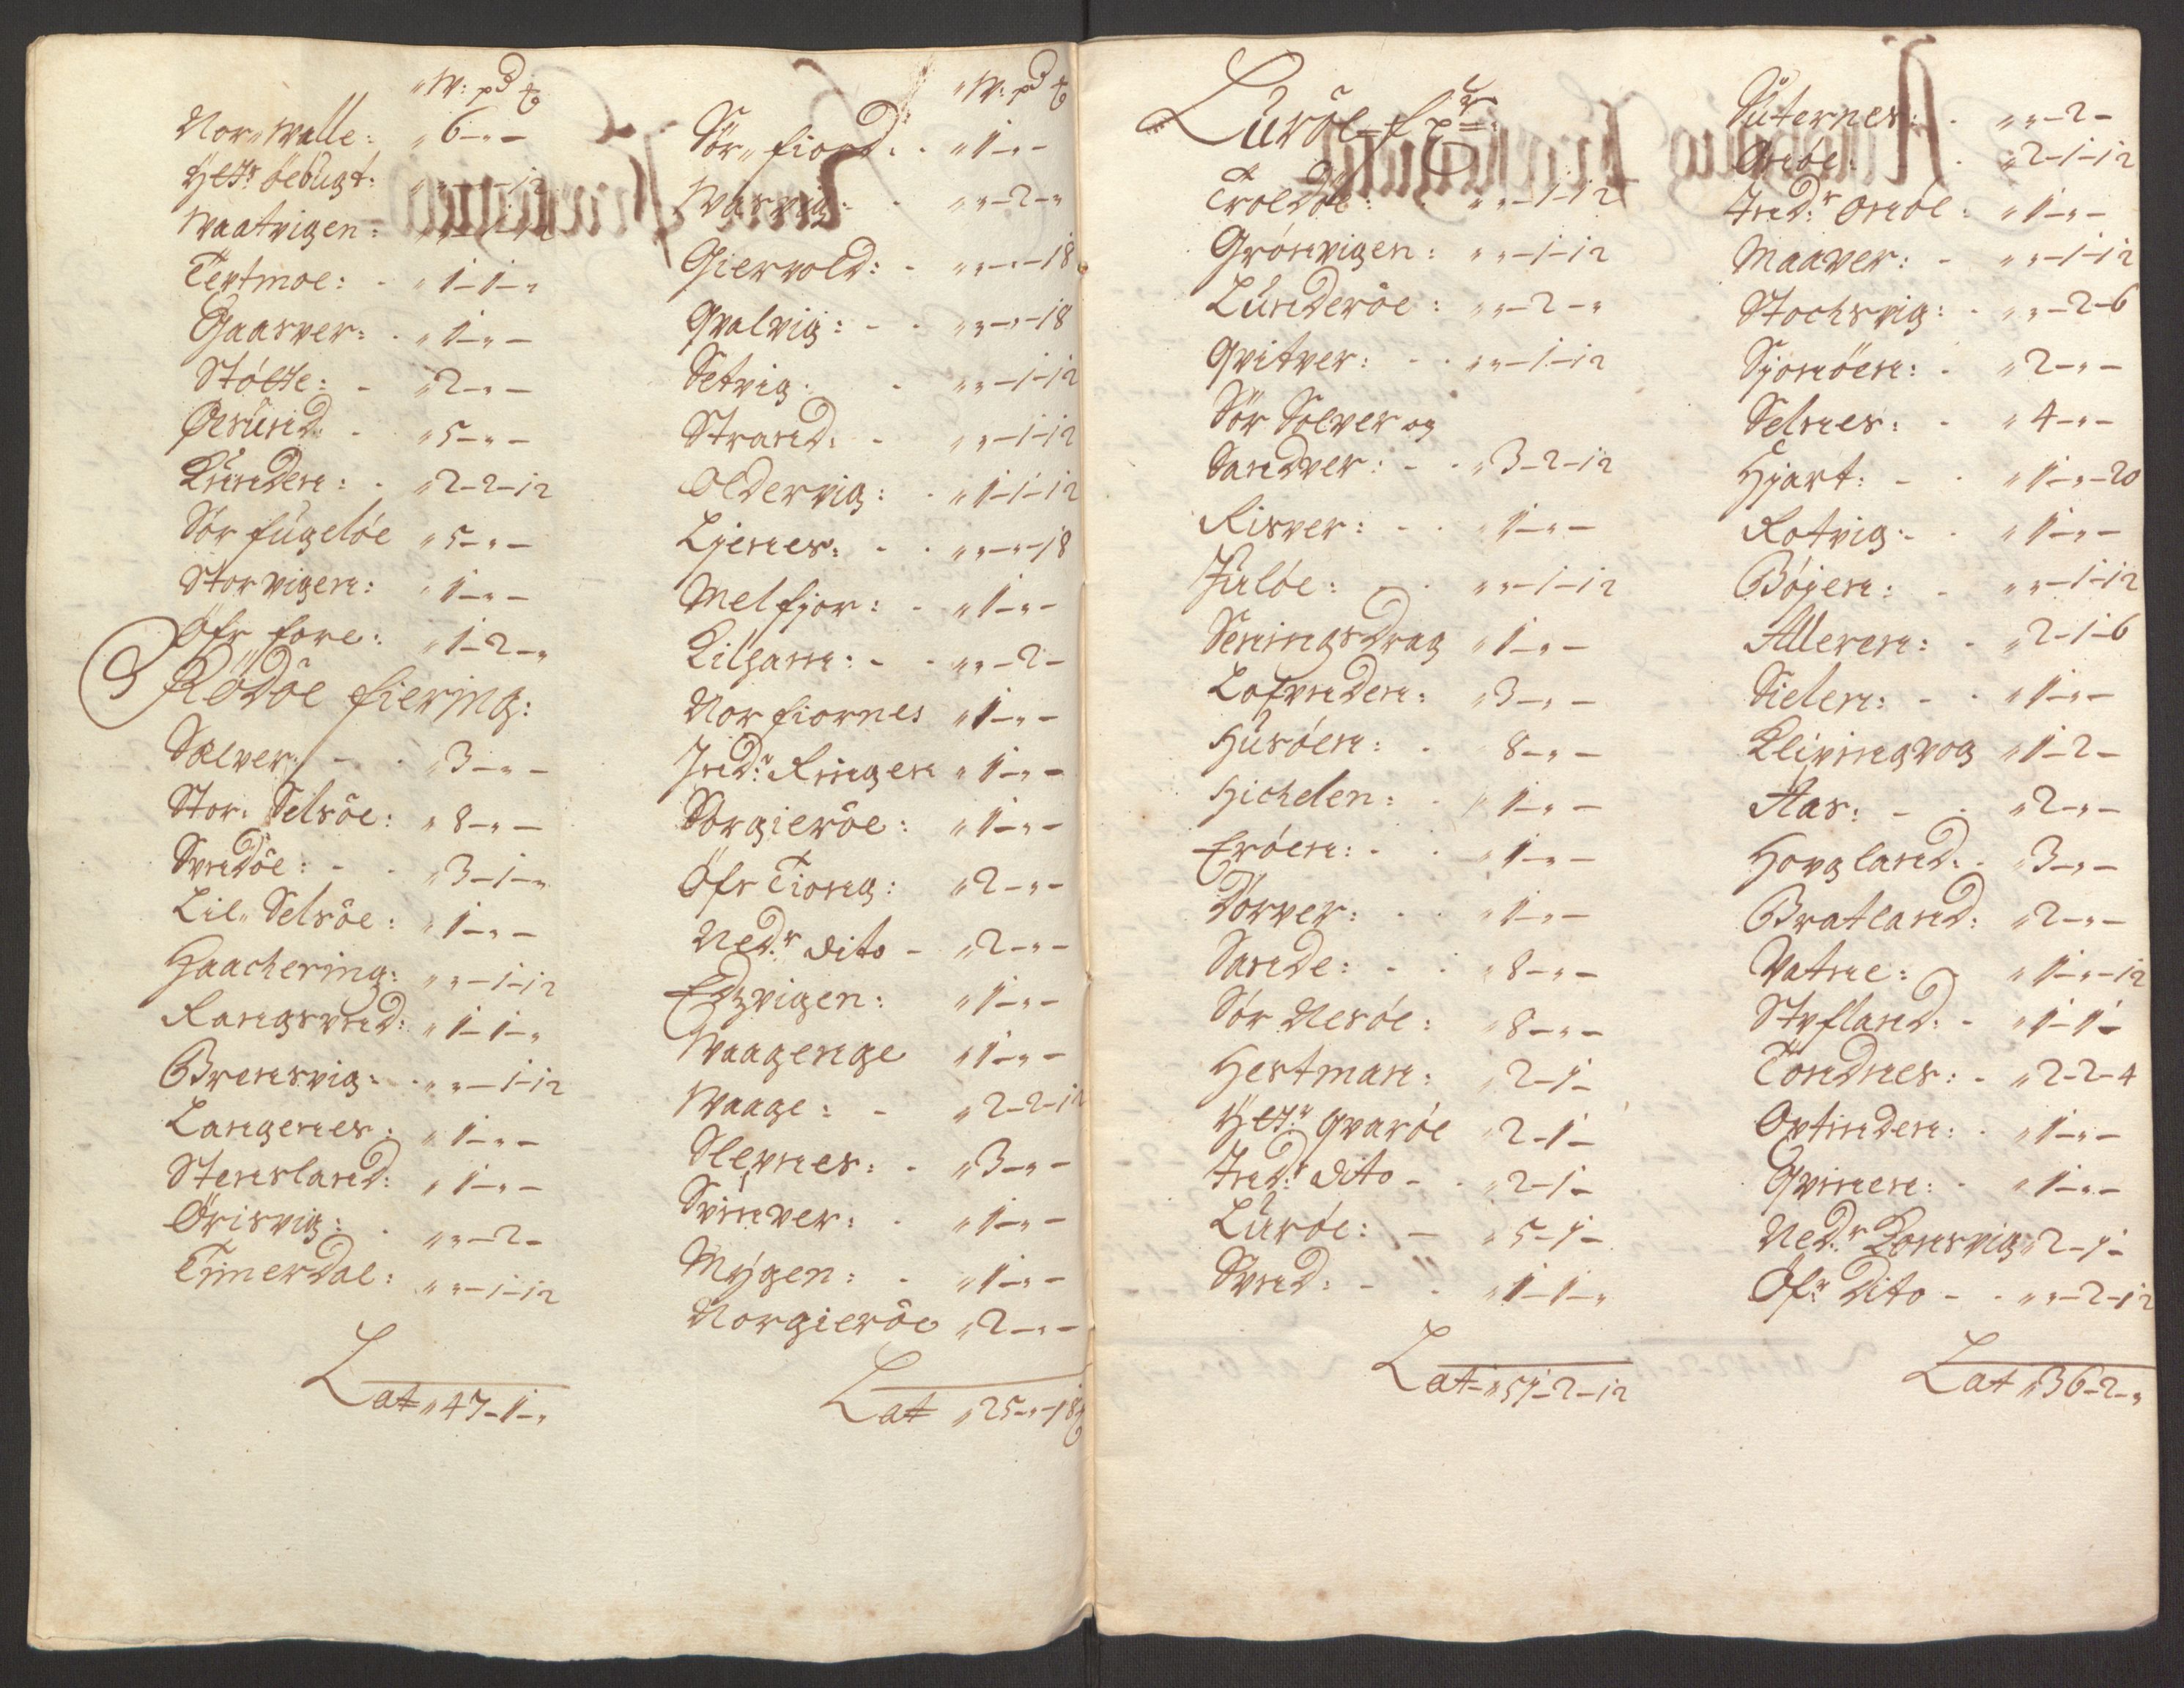 W: pd ℔
Nor„ Walle: „ 6 - „ -
Ytt.r Øebugt: „ „ - 1 - 12
Waatvigen: „ „ - 1 - 12
Textmoe: - „ 1 - 1 - „
Gaasver: - „ 1 - „ -
Støtte: - „ 2 - „ -
Øesund: - „ 5 - „ -
Lunden: - „ 2 - 2 - 12
Sør fugeløe „ 5 - „ -
Storvigen: „ 1 - „ -
Øfr fore: „ 1 - 2 - „
Rødøe fiering:
Sælver: - - „ 3 - „ -
Stor: Selsøe: „ 8 - „ -
Svndøe: - - „ 3 - 1 - „
Lil„ Selsøe: „ 1 - „ -
Haachering: „ „ - 1 - 12
Rangsvnd: „ 1 - 1 - „
Brensvig: - „ „ - 1 - 12
Langenes: „ 1 - „ -
Stensland: „ 1 - „ -
Ørisvig: - „ „ - 2 -
Timerdal: „ „ - 1 - 12
Lat „ 47 - 1 - „
W: pd ℔
Sør„ fiord: - „ 1 - „ -
Wasvig: - „ „ - 2 - „
Giervold: - „ „ - „ - 18
Qvalvig: - - „ „ - „ - 18
Setvig: - „ „ - 1 - 12
Strand: - „ „ - 1 - 12
Oldervig: - „ 1 - 1 - 12
Ljenes: - - „ „ - „ - 18
Melfjor: - „ 1 - „ -
Kilgam: - - „ „ - 2 -
Nor fiornes „ 1 - „ -
Ind:r Ringen „ 1 - „ -
Sørgierøe: „ 1 - „ -
Øfr Tiong: „ 2 - „ -
Ned:r dito - „ 2 - „ -
Edzvigen: „ 1 - „ -
Waagenge „ 1 - „ -
Waage: - „ 2 - 2 - 12
Slevnes: - „ 3 - „ -
Svinver: - „ 1 - „ -
Mygen: - „ 1 - „ -
Norgierøe „ 2 - „ -
Lat „ 25 - „ - 18 ℔
Lurøe
Troldøe: „ „ - 1 - 12
Grønvigen: „ „ - 1 - 12
Lunderøe: „ „ - 2 - „
Qvitver: - - „ „ - 1 - 12
Sør Solver og
Sandver: - - „ 3 - 2 - 12
Risver: - - „ 1 - „ -
Juløe: - - „ „ - 1 - 12
Seningsdrag „ 1 - „ -
Lofvnden: „ 3 - „ -
Husøen: - 8 - „ -
Hichelen: - „ 1 - „ -
Erøen: - - „ 1 - „ -
Dørver: - - „ 1 - „ -
Sande: - - „ 8 - „ -
Sør Nesøe: „ 8 - „ -
Hestman: „ 2 - 1 -
Ytt:r Qvarøe „ 2 - 1 -
Ind:r dito - - „ 2 - 1 -
Lurøe: - „ 5 - 1 -
Svnd: - - „ 1 - 1 - „
Lat „ 57 - 2 - 12
Suternes: - „ „ - 2 -
Onøe: - „ 2 - 1 - 12
Ind:r Onøe: „ 1 - „ -
Maaver: - „ „ - 1 - 12
Stochsvig: - „ „ - 2 - 6
Sjonøen: - „ 2 - „ -
Selnes: - „ 4 - „ -
Hjart: - - „ 1 - „ - 20
Rotvig: - - „ 1 - „ -
Bøjen: - „ „ - 1 - 12
Alleren: - „ 2 - 1 - 6
Sielen: - - „ 1 - „ -
Klivingvog „ 1 - 2 -
Aas: - - „ 2 - „ -
Hovgland: - „ 3 - „ -
Bratland: „ 2 - „ -
Vatne: „ 1 - „ - 12
Styfland: - „ 1 - 1 -
Tondnes: - „ 2 - 2 - 4
Oxtinden: - „ 1 - „ -
Qvinen: - „ 1 - „ -
Ned:r Konsvig „ 2 - 1 -
Øf:r dito - - „ „ - 2 - 12
Lat „ 36 - 2 - „